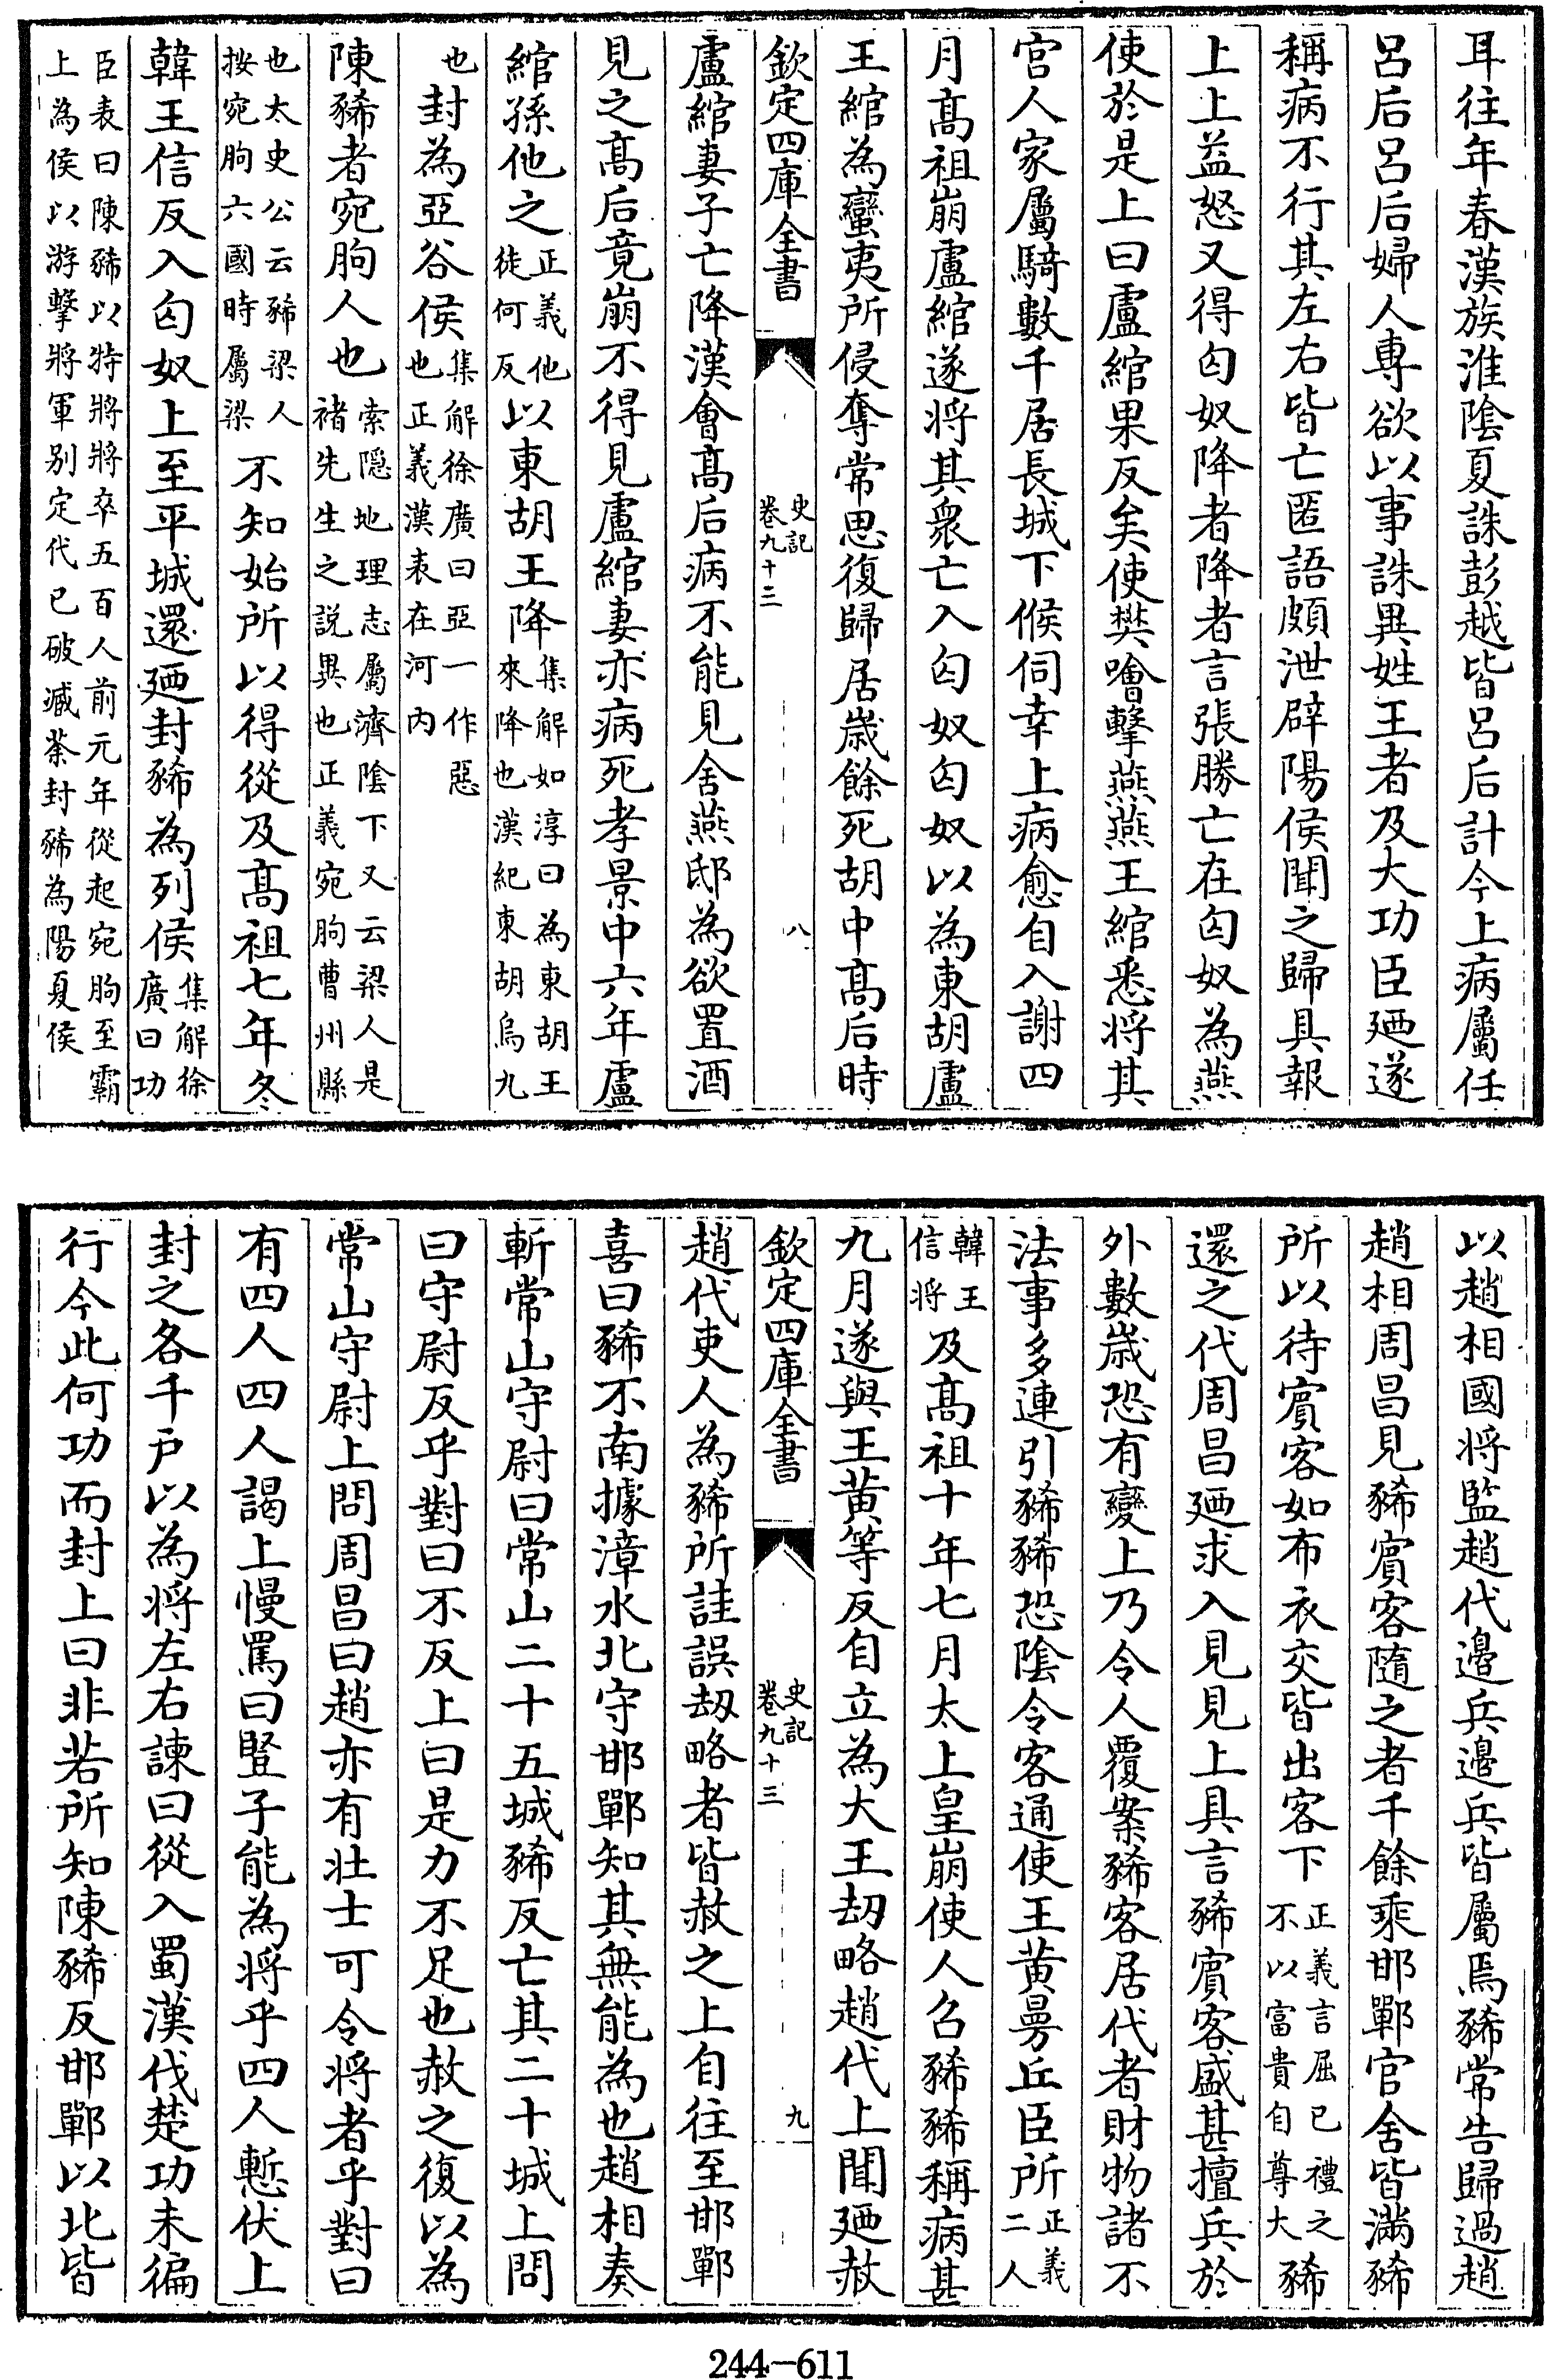 耳往年春漢族淮陰夏誅彭越皆呂后計今上病屬任
呂后呂后婦人專欲以事誅異姓王者及大功臣廼遂
稱病不行其左右皆亡匿語頗泄辟陽侯聞之歸具報
上上益怒又得匈奴降者降者言張勝亡在匈奴為燕
使於是上曰盧綰果反矣使樊噲擊燕燕王綰悉將其
宮人家屬騎數千居長城下候伺幸上病愈自入謝四
月髙祖崩盧綰遂將其衆亡入匈奴匈奴以為東胡盧
王綰為蠻夷所侵奪常思復歸居歲餘死胡中髙后時
欽定四庫全書
史記
卷九十三
八
盧綰妻子亡降漢會髙后病不能見舍燕邸為欲置酒
見之髙后竟崩不得見盧綰妻亦病死孝景中六年盧
綰孫他之正義他徒何反以東胡王降集解如淳曰為東胡王來降也漢紀東胡烏九
也封為亞谷侯集解徐廣曰亞一作惡也正義漢表在河内
陳豨者宛朐人也索隠地理志屬濟陰下又云梁人是禇先生之説異也正義宛朐曹州縣
也太史公云豨梁人按宛朐六國時屬梁不知始所以得從及髙祖七年冬
韓王信反入匈奴上至平城還廼封豨為列侯集解徐廣曰功
臣表曰陳豨以特將將卒五百人前元年從起宛朐至霸上為侯以游擊將軍别定代已破臧荼封豨為陽夏侯
以趙相國將監趙代邊兵邊兵皆屬焉豨常告歸過趙
趙相周昌見豨賓客隨之者千餘乘邯鄲官舍皆滿豨
所以待賓客如布衣交皆出客下正義言屈已禮之不以富貴自尊大豨
還之代周昌廼求入見見上具言豨賓客盛甚擅兵於
外數歲恐有變上乃令人覆案豨客居代者財物諸不
法事多連引豨豨恐陰令客通使王黄曼丘臣所正義二人
韓王信將及髙祖十年七月太上皇崩使人召豨豨稱病甚
九月遂與王黄等反自立為大王刼略趙代上聞廼赦
欽定四庫全書
史記
卷九十三
九
趙代吏人為豨所詿誤刼略者皆赦之上自往至邯鄲
喜曰豨不南據漳水北守邯鄲知其無能為也趙相奏
斬常山守尉曰常山二十五城豨反亡其二十城上問
曰守尉反乎對曰不反上曰是力不足也赦之復以為
常山守尉上問周昌曰趙亦有壯士可令將者乎對曰
有四人四人謁上慢罵曰豎子能為將乎四人慙伏上
封之各千户以為將左右諫曰從入蜀漢伐楚功未徧
行今此何功而封上曰非若所知陳豨反邯鄲以北皆
244-611